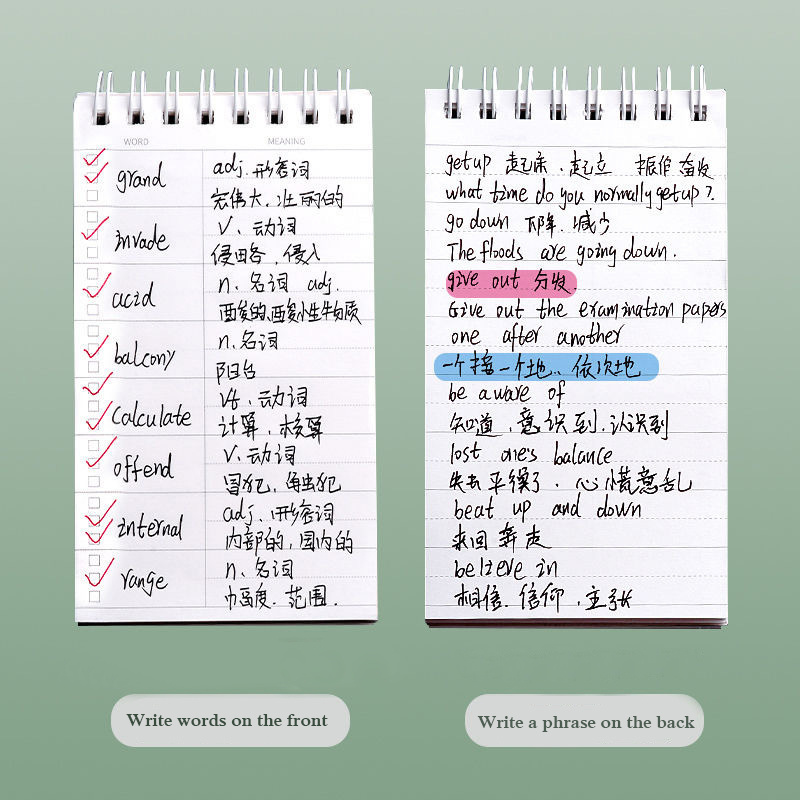 WORD MEANING
grand adj. 形容词
宏伟大、壮丽的
invade v. 动词
侵略, 侵入
acid n. 名词 adj.
酸的、酸性物质
balcony n. 名词
阳台
calculate vt. 动词
计算、核算
offend v. 动词
冒犯、触犯
internal adj. 形容词
内部的, 国内的
range n. 名词
幅度、范围.
get up 起床、起立 振作 奋发
what time do you normally get up?
go down 下降、减少
The floods are going down.
give out 分发
Give out the examination papers
one after another
一个接一个地、依次地
be aware of
知道、意识到、认识到
lost one's balance
失去平衡了、心慌意乱
beat up and down
来回奔走
believe in
相信、信仰、主张
Write words on the front
Write a phrase on the back